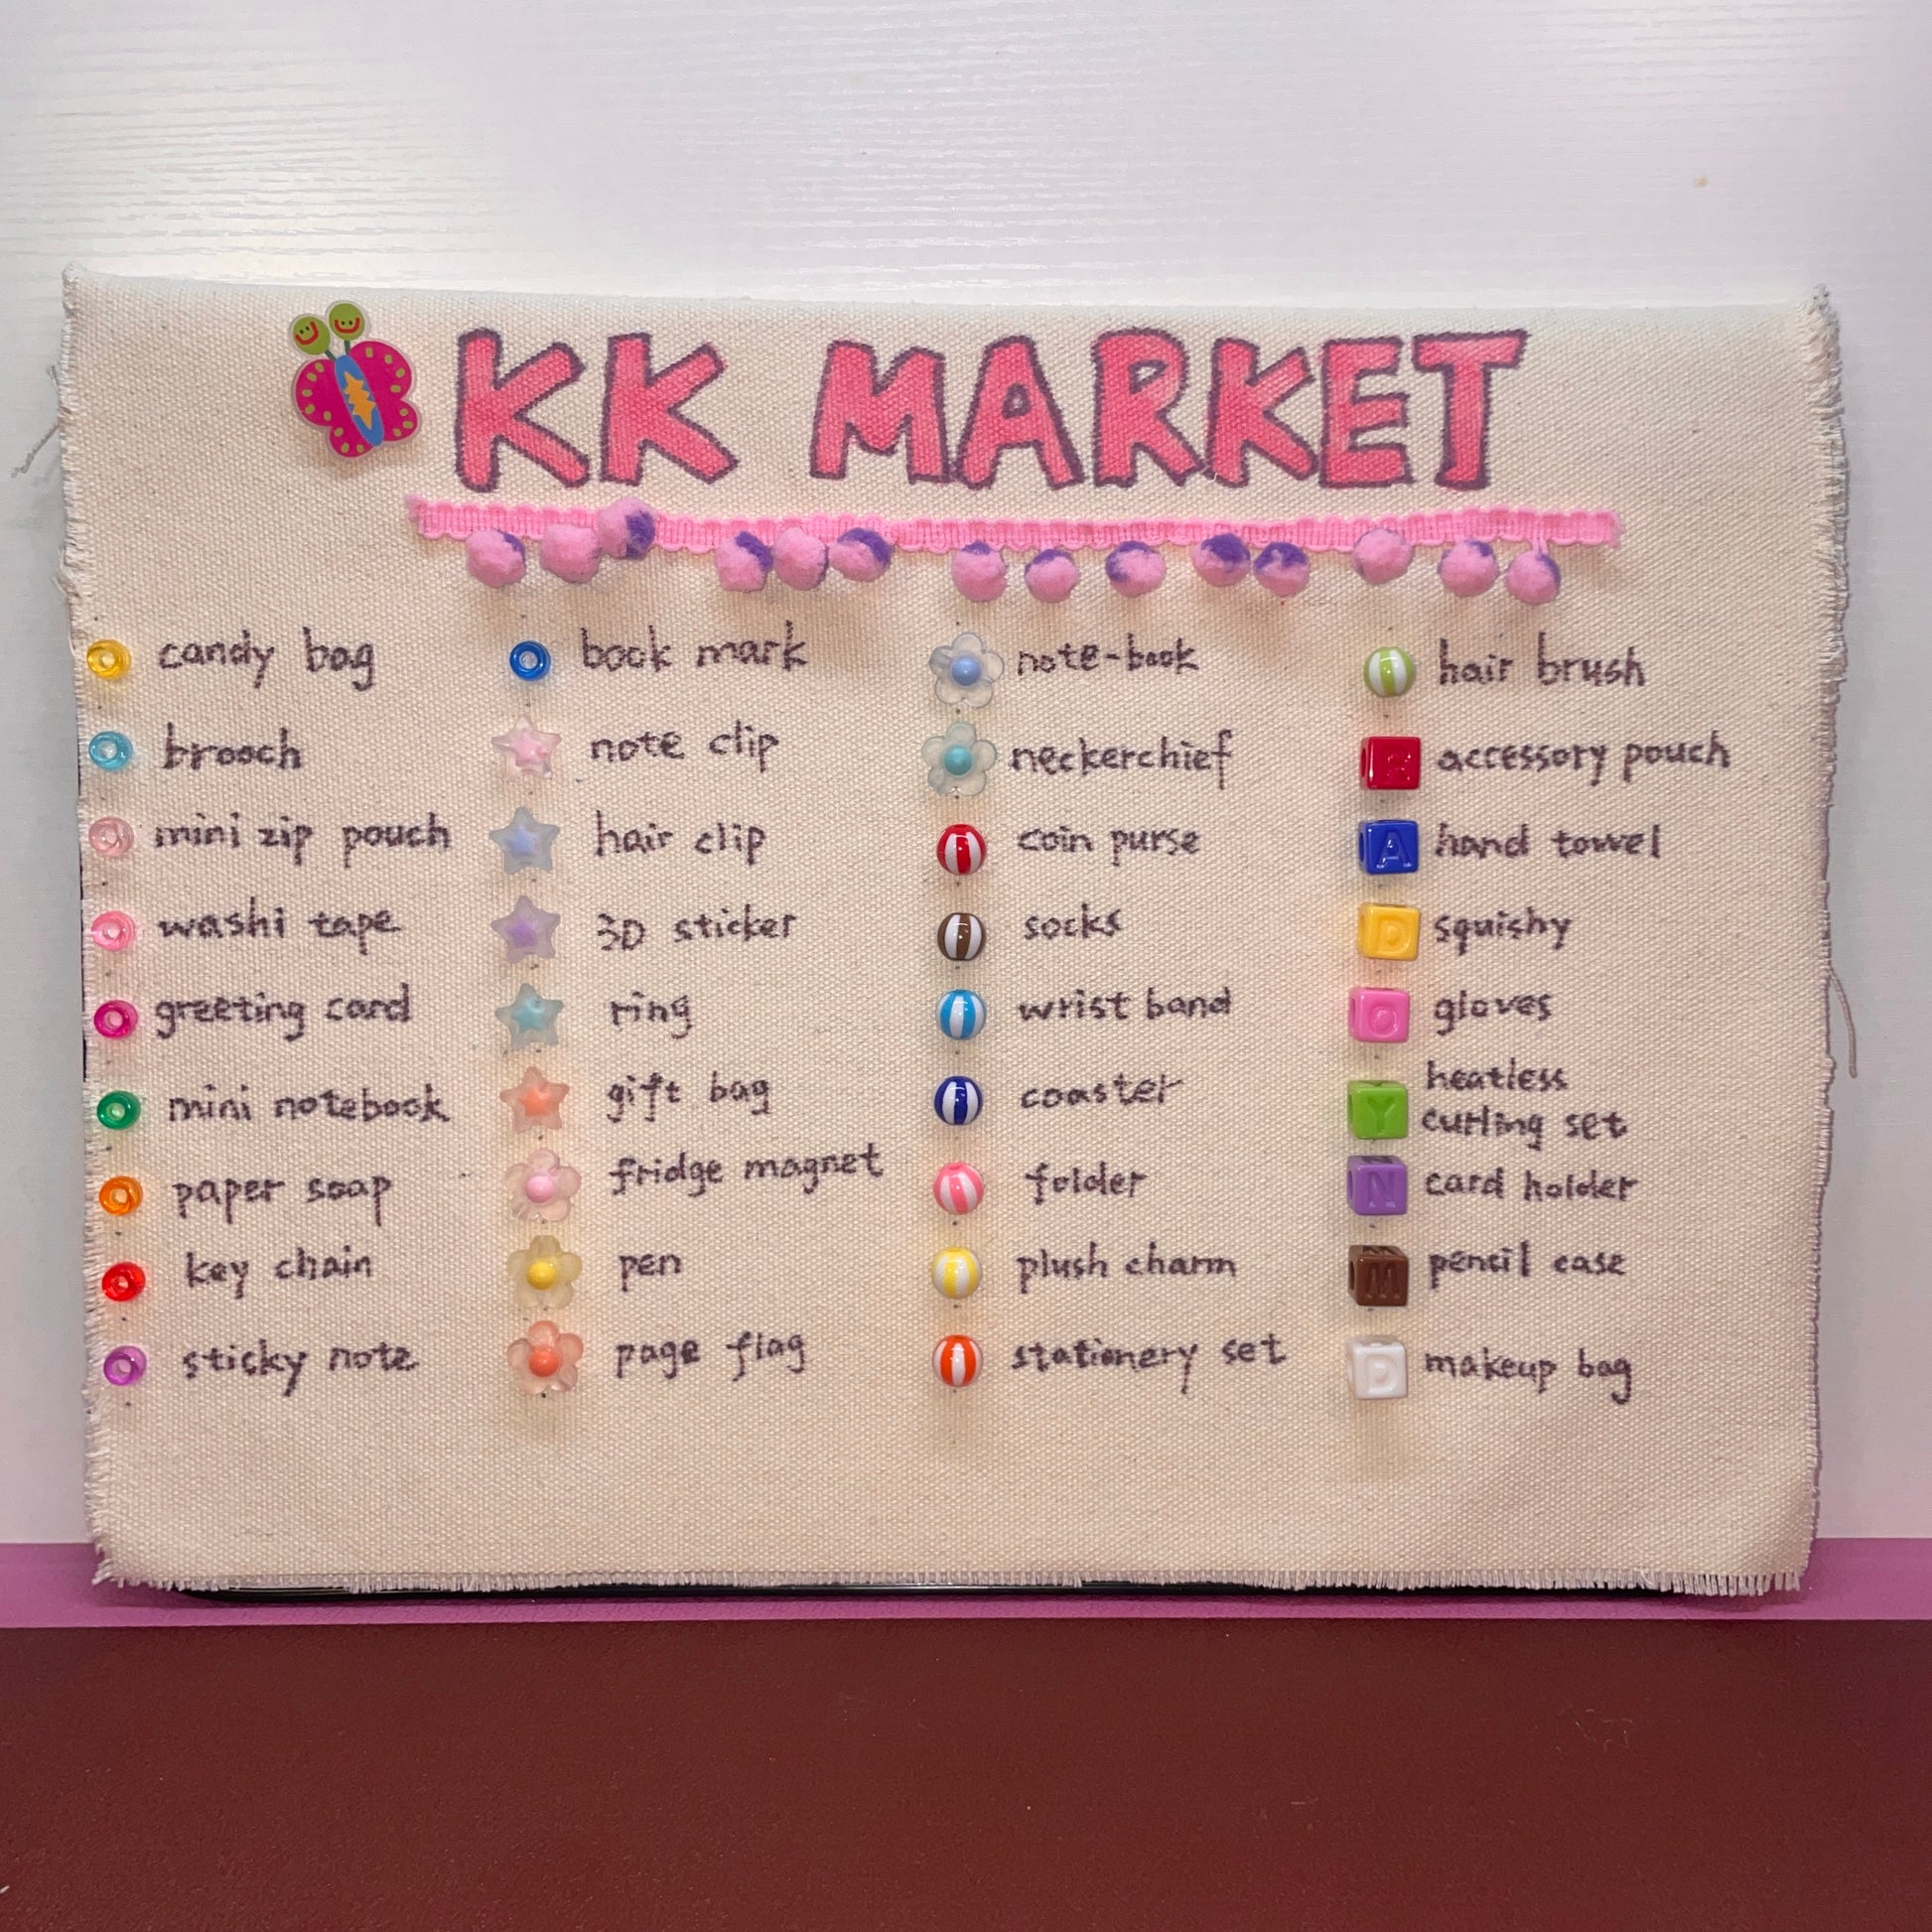 KK MARKET
candy bag
brooch
mini zip pouch
washi tape
greeting card
mini notebook
paper soap
key chain
sticky note
book mark
note clip
hair clip
3D sticker
ring
gift bag
fridge magnet
pen
page flag
note-book
neckerchief
coin purse
socks
wrist band
coaster
folder
plush charm
stationery set
hair brush
accessory pouch
A hand towel
D squishy
O gloves
heatless
Y curling set
N card holder
M pencil case
D makeup bag